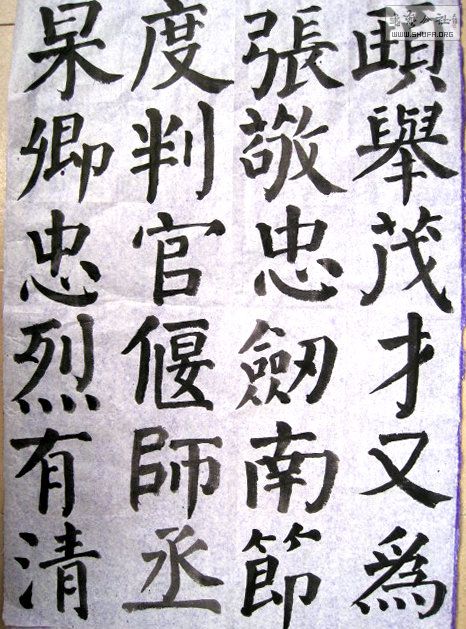 頲舉茂才又爲
張敬忠劒南節
度判官偃師丞
杲卿忠烈有清
WWW.SHUFA.ORG